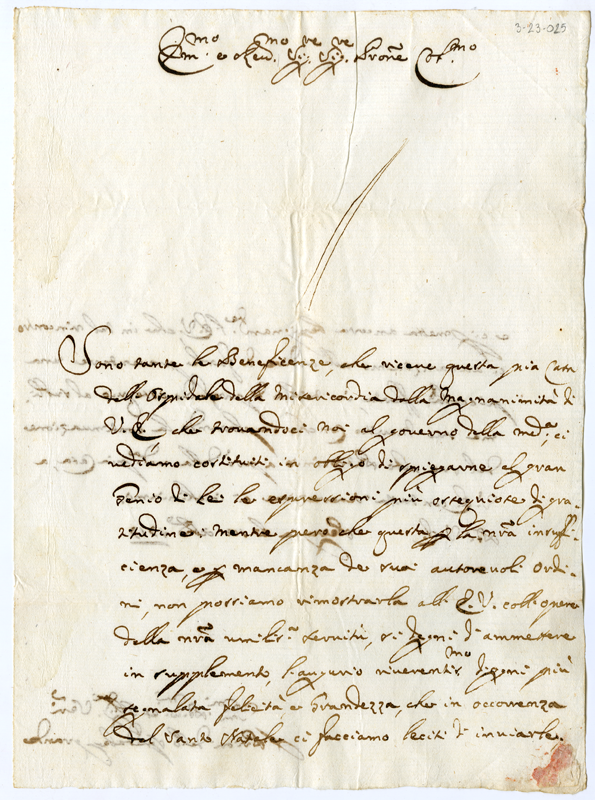 3-23-025
Em.mo e Rev.mo Sig.re Sig.re Prone Col.mo
Sono tante le Beneficenze, che riceve questa pia Casa
dello Ospidale della Misericordia dalla Magnanimità di
V. E. che trovandoci noi al governo della med.a, ci
vediamo costituiti in obligo di spiegarne al gran
Genio di lei le espressioni più ossequiose di gra-
titudine: Mentre però che questa p la nrã insuffi-
cienza, e p mancanza de suoi autorevoli Ordi-
ni, non possiamo rimostrarla all' E. V. coll'opere
della nrã umilis.a servitù, si degni di ammettere
in supplemento, l'augurio riverentis.mo d'ogni più
segnalata felicità e Grandezza, che in occorrenza
del Santo Natale ci facciamo leciti di inviarle.